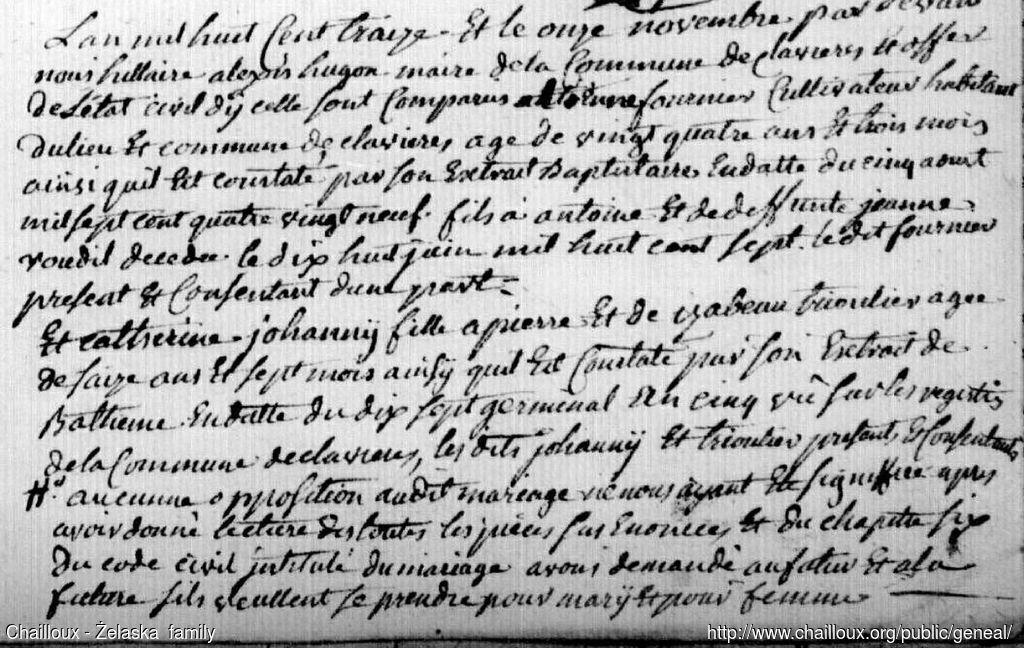 Lan mil huit Cent traize. Et le onze novembre par devan
nous hillaire alexis hugon maire dela Commune de clavieres Et offer
De Létat civil dÿ celle sont Comparus antoinne fournier Cultivateur habitant
Du lieu Et commune de clavieres age de vingt quatre ans Et trois mois
ainsi quil Est constaté par son Extrait Baptistaire En datte du cinq aoust
mil sept cent quatre vingt neuf. fils à antoine Et de deffunte jeanne
voudil decedee le dix huit juin mil huit cent sept. le dit fournier
present Et Consentant dune part =
Et catherine johannÿ fille a pierre Et de izabeau trioulier agee
de saize ans Et sept mois ainsÿ quil Est Constaté par son Extrait de
Batheme En datte du dix sept germinal An cinq sur les registres
dela Commune declavieres, les dits johannÿ Et trioulier presents Et Consentants
aucunne opposition audit mariage ne nous ayant Ete signiffiée apres
avoir donné lecture des toutes les pièces sus Enoncees Et du chapitre six
Du code civil intitulé du mariage avons demandé au futur Et ala
future sils veullent se prendre pour marÿ Et pour femme
Chailloux - Żelaska family
http://www.chailloux.org/public/geneal/